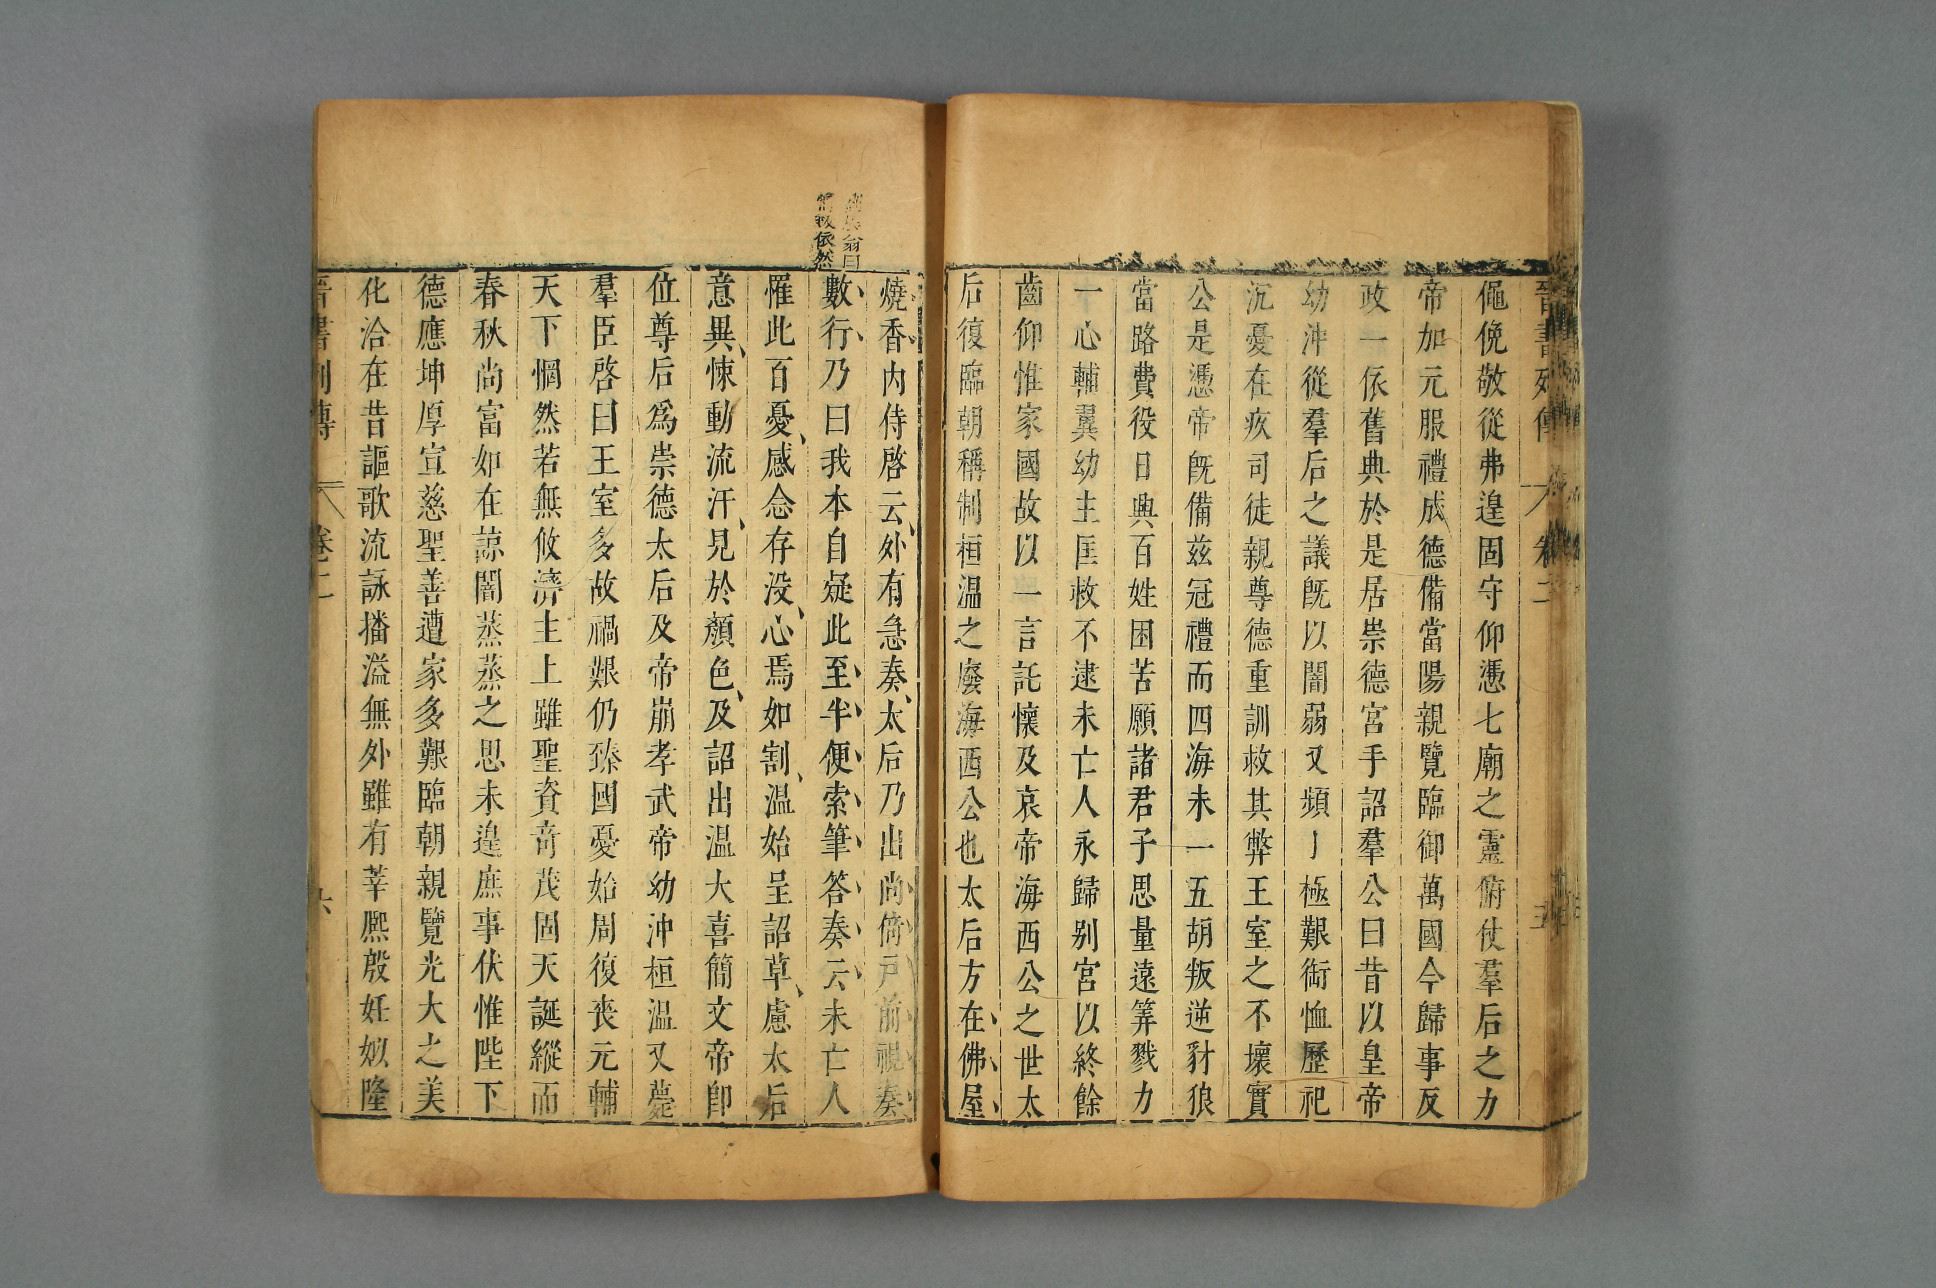 晉書列傳 卷二 五
僶俛敬從弗遑固守仰憑七廟之靈俯仗羣后之力
帝加元服禮成德備當陽親覽臨御萬國今歸事反
政一依舊典於是居崇德宮手詔羣公曰昔以皇帝
幼沖從羣后之議旣以闇弱又頻丁極艱銜恤歷祀
沉憂在疚司徒親尊德重訓救其弊王室之不壞實
公是憑帝旣備茲冠禮而四海未一五胡叛逆豺狼
當路費役日興百姓困苦願諸君子思量遠筭戮力
一心輔翼幼主匡救不逮未亡人永歸別宮以終餘
齒仰惟家國故以一言託懷及哀帝海西公之世太
后復臨朝稱制桓溫之廢海西公也太后方在佛屋
燒香內侍啓云外有急奏太后乃出尚倚戶前視奏
翁曰
敘依然
數行乃曰我本自疑此至半便索筆答奏云未亡人
罹此百憂感念存沒心焉如割溫始呈詔草慮太后
意異悚動流汗見於顏色及詔出溫大喜簡文帝卽
位尊后爲崇德太后及帝崩孝武帝幼沖桓溫又薨
羣臣啓曰王室多故禍艱仍臻國憂始周復喪元輔
天下惘然若無攸濟主上雖聖資奇茂固天誕縱而
春秋尚富如在諒闇蒸蒸之思未遑庶事伏惟陛下
德應坤厚宣慈聖善遭家多艱臨朝親覽光大之美
化洽在昔謳歌流詠播溢無外雖有莘熈殷妊姒隆
晉書列傳 卷二 六